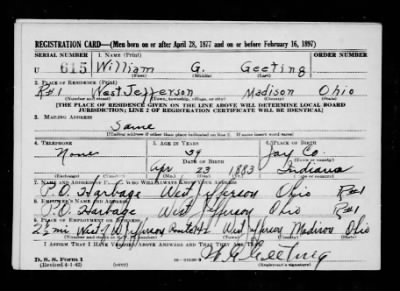 REGISTRATION CARD—(Men born on or after April 28, 1877 and on or before February 16, 1897)
SERIAL NUMBER 1. NAME (Print) ORDER NUMBER
U 615 William G. Geeting
(First) (Middle) (Last)
2. PLACE OF RESIDENCE (Print)
R#1 West Jefferson Madison Ohio
(Number and street) (Town, township, village, or city) (County) (State)
[THE PLACE OF RESIDENCE GIVEN ON THE LINE ABOVE WILL DETERMINE LOCAL BOARD
JURISDICTION; LINE 2 OF REGISTRATION CERTIFICATE WILL BE IDENTICAL]
3. MAILING ADDRESS
Same
[Mailing address if other than place indicated on line 2. If same insert word same]
4. TELEPHONE 5. AGE IN YEARS 6. PLACE OF BIRTH
None 59 Jay Co.
DATE OF BIRTH
Apr 23 1883 Indiana
7. NAME AND ADDRESS OF PERSON WHO WILL ALWAYS KNOW YOUR ADDRESS
P.O. Harbage West Jefferson Ohio R#1
8. EMPLOYER'S NAME AND ADDRESS
P.O. Harbage West Jefferson Ohio R#1
9. PLACE OF EMPLOYMENT OR BUSINESS
2½ mi West Jefferson West Jefferson Madison Ohio
(Number and street or R. F. D. number) (Town) (County) (State)
I AFFIRM THAT I HAVE VERIFIED ABOVE ANSWERS AND THAT THEY ARE TRUE.
D. S. S. Form 1
(Revised 4-1-42) (over) W. G. Geeting
(Registrant's signature)